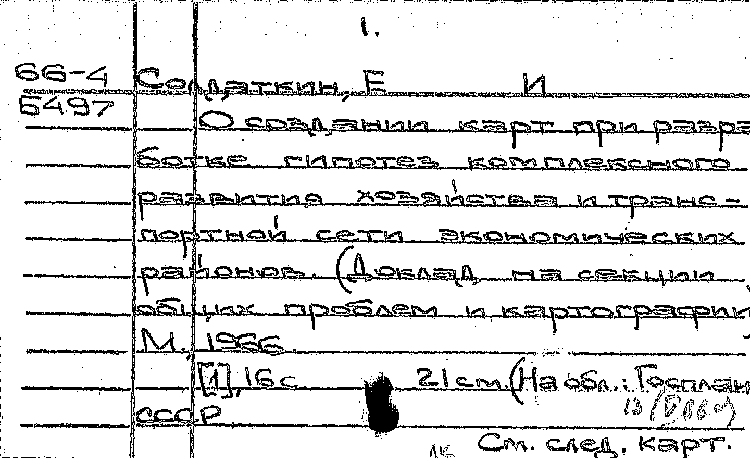 1.
66-4 Солдаткин, Е И
5497 О создании карт при разра
ботке гипотез комплексного
развития хозяйства и транс-
портной сети экономических
районов. (Доклад на секции
общих проблем и картографии
М., 1966
[1], 16 с 21 см (На обл.: Госплан
СССР
См. след. карт.